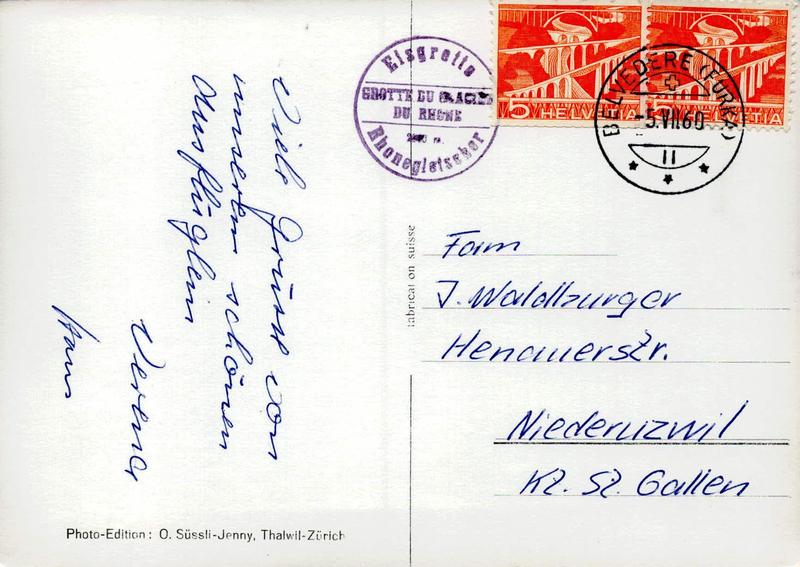 Viele Grüsse von
unserem schönen
Ausflüglein
Verena
Hans
Photo-Edition: O. Süssli-Jenny, Thalwil-Zürich
fabrication suisse
Eisgrotte
GROTTE DU GLACIER
DU RHONE
Rhonegletscher
5 HELVETIA
5 HELVETIA
BELVEDERE (FURKA)
-5.VII.60
11
Fam
J. Waldburger
Henauerstr.
Niederuzwil
Kt. St. Gallen